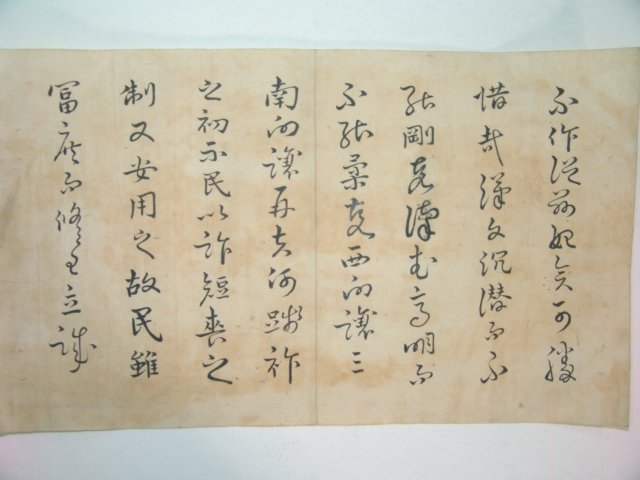 不作從茲始矣可勝
惜哉漢文沉潛而不
能剛克漢武高明而
不能柔克西向讓三
南向讓再夫何踐祚
之初示民以詐短喪之
制又安用之故民雖
富庶而修己立誠